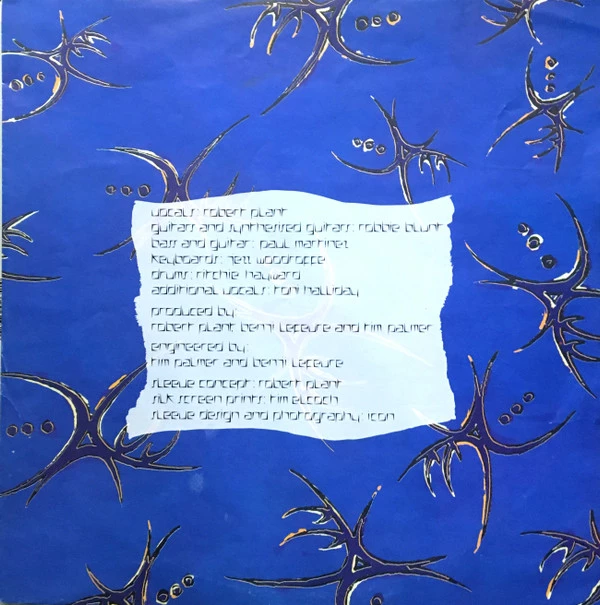 vocals: robert plant
guitars and synthesised guitars: robbie blunt
bass and guitar: paul martinez
keyboards: jezz woodroffe
drums: ritchie hayward
additional vocals: toni halliday
produced by:
robert plant benji lefevre and tim palmer
engineered by:
tim palmer and benji lefevre
sleeve concept: robert plant
silk screen prints: tim elcoch
sleeve design and photography: icon